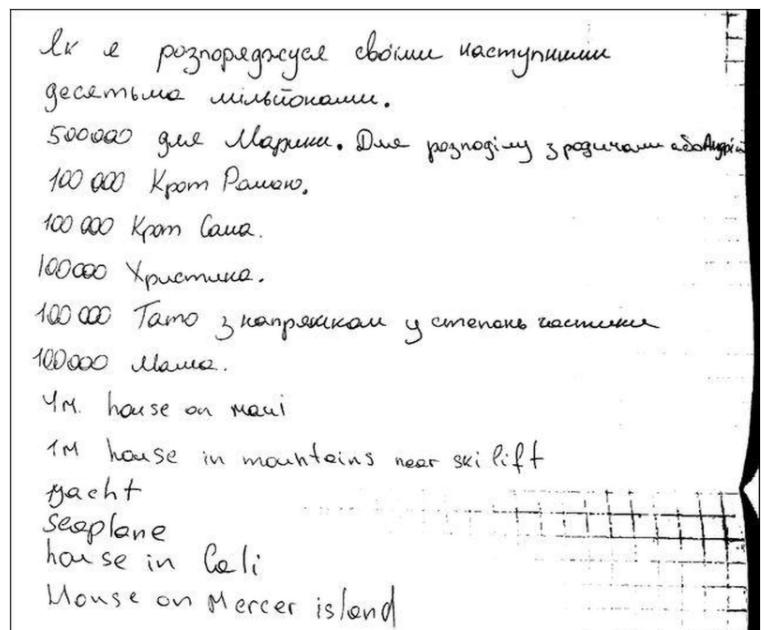 Як я розпоряджуся своїми наступними
десятьма мільйонами.
500000 для Марини. Для розподілу з родичами або Андрій
100 000 Крот Рамою.
100 000 Крот Саша.
100000 Христина.
100 000 Тато з напрямком у степень частини
100000 Мама.
4м. house on maui
1м house in mountains near ski lift
yacht
seaplane
house in Cali
House on Mercer island